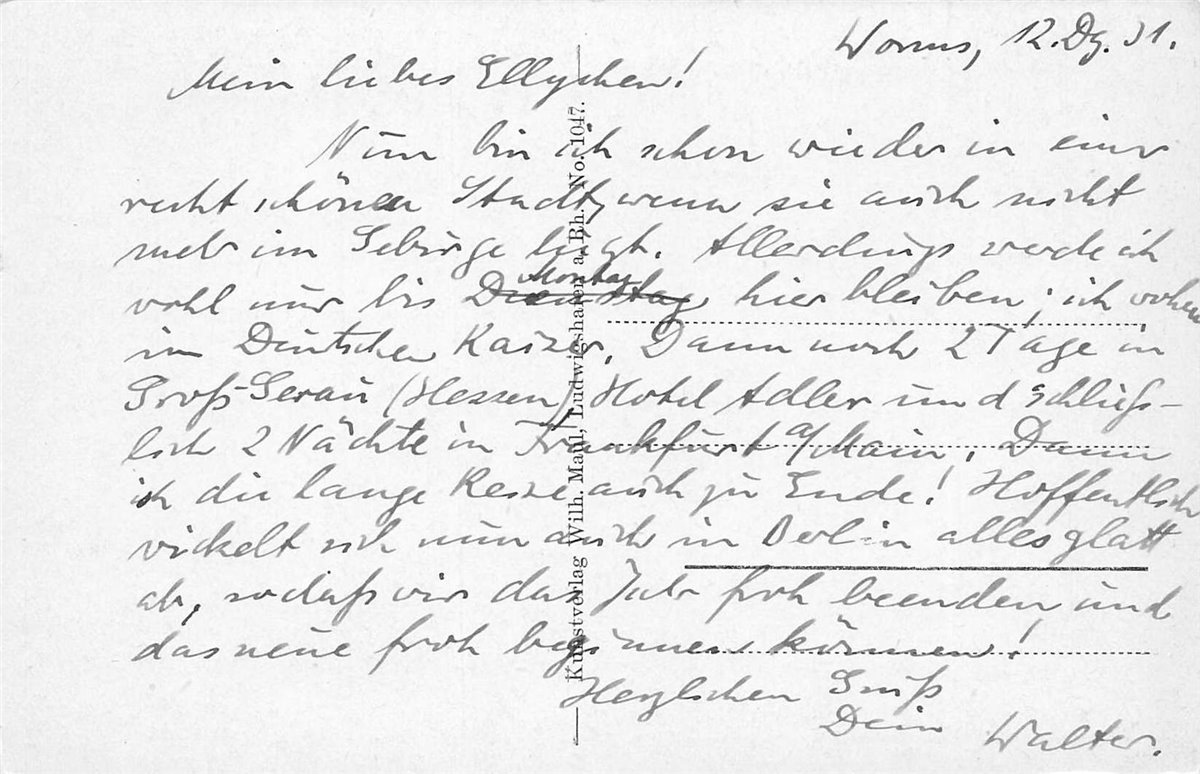 Worms, 12. Dz. 31.
Mein liebes Ellychen!
Nun bin ich schon wieder in einer
recht schönen Stadt, wenn sie auch nicht
mehr im Gebirge liegt. Allerdings werde ich
wohl nur bis Dienstag Montag hier bleiben; ich wohne
im Deutschen Kaiser. Dann noch 2 Tage in
Groß-Gerau (Hessen) Hotel Adler und schließ-
lich 2 Nächte in Frankfurt a/Main. Dann
ist die lange Reise auch zu Ende! Hoffentlich
wickelt sich nun auch in Berlin alles glatt
ab, sodaß wir das Jahr froh beenden und
das neue froh beginnen können!
Herzlichen Gruß
Dein Walter.
Kunstverlag Wilh. Maul, Ludwigshafen a. Rh. No. 1047.